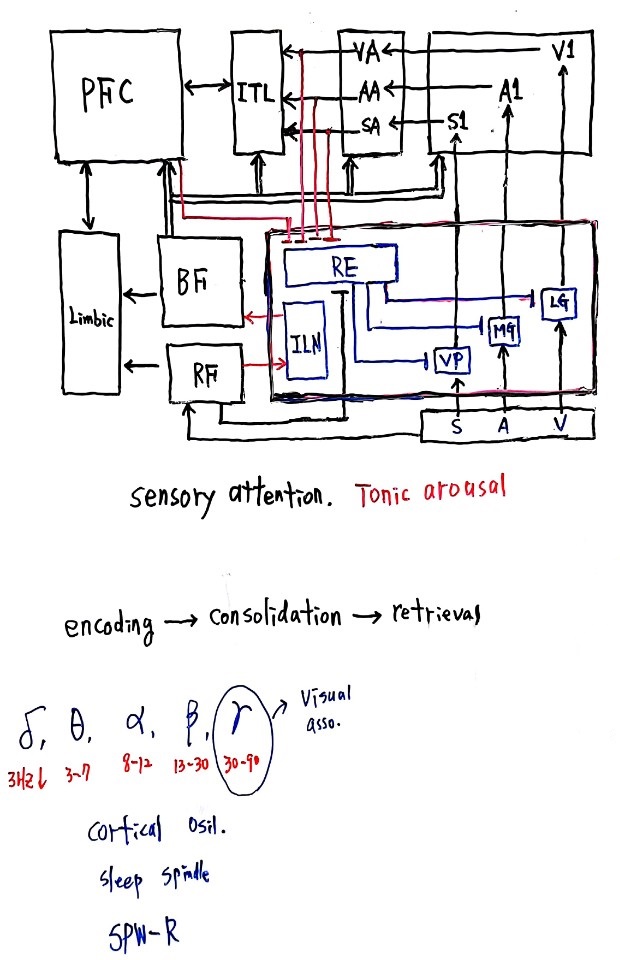 PFC
ITL
VA
AA
SA
V1
A1
S1
Limbic
BF
RF
RE
ILN
VP
MG
LG
S A V
sensory attention. Tonic arousal
encoding → consolidation → retrieval
δ, θ, α, β, γ → Visual
asso.
3Hz↓ 3-7 8-12 13-30 30-90
Cortical osil.
sleep spindle
SPW-R